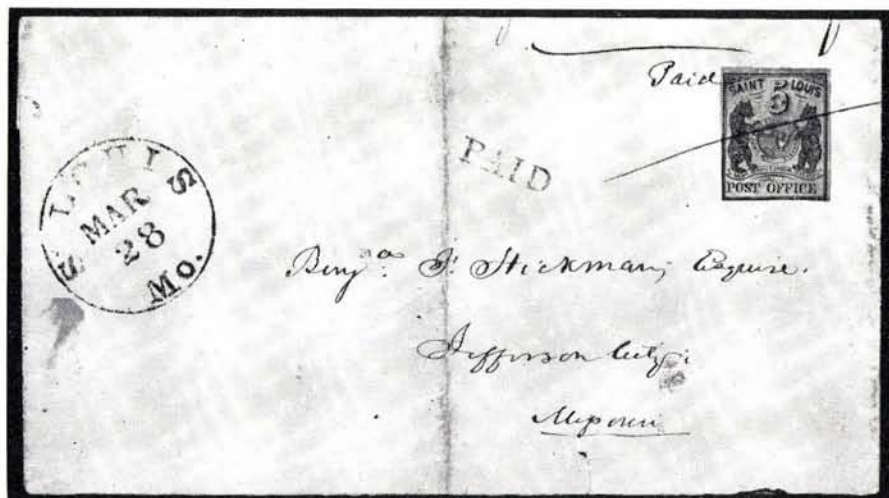 Paid
SAINT LOUIS
5
POST OFFICE
PAID
ST LOUIS
MAR
28
MO.
Benj.a F. Hickman, Esquire.
Jefferson City,
Missouri